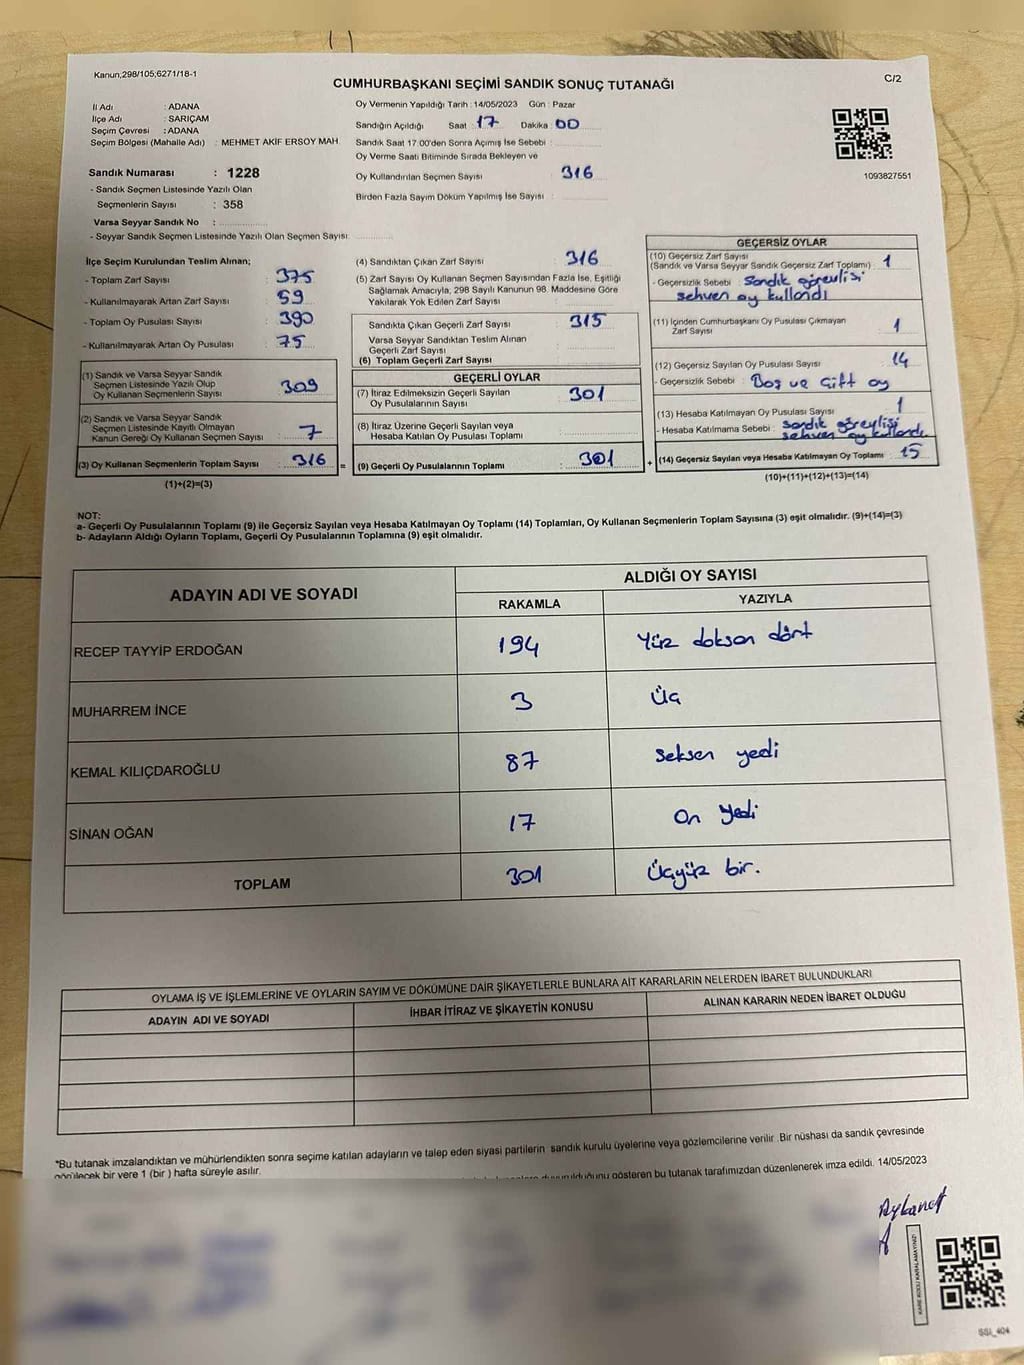 Kanun,298/105;6271/18-1
C/2
CUMHURBAŞKANI SEÇİMİ SANDIK SONUÇ TUTANAĞI
İl Adı : ADANA
İlçe Adı : SARIÇAM
Seçim Çevresi : ADANA
Seçim Bölgesi (Mahalle Adı) : MEHMET AKİF ERSOY MAH.
Sandık Numarası : 1228
- Sandık Seçmen Listesinde Yazılı Olan
Seçmenlerin Sayısı : 358
Varsa Seyyar Sandık No :
- Seyyar Sandık Seçmen Listesinde Yazılı Olan Seçmen Sayısı:
Oy Vermenin Yapıldığı Tarih : 14/05/2023 Gün : Pazar
Sandığın Açıldığı Saat : 17 Dakika : 00
Sandık Saat 17.00'den Sonra Açmış İse Sebebi :
Oy Verme Saati Bitiminde Sırada Bekleyen ve
Oy Kullandırılan Seçmen Sayısı : 316
Birden Fazla Sayım Döküm Yapılmış İse Sayısı :
1093827551
İlçe Seçim Kurulundan Teslim Alınan;
- Toplam Zarf Sayısı : 375
- Kullanılmayarak Artan Zarf Sayısı : 59
- Toplam Oy Pusulası Sayısı : 390
- Kullanılmayarak Artan Oy Pusulası : 75
(1) Sandık ve Varsa Seyyar Sandık
Seçmen Listesinde Yazılı Olup
Oy Kullanan Seçmenlerin Sayısı : 309
(2) Sandık ve Varsa Seyyar Sandık
Seçmen Listesinde Kayıtlı Olmayan
Kanun Gereği Oy Kullanan Seçmen Sayısı : 7
(3) Oy Kullanan Seçmenlerin Toplam Sayısı : 316 =
(1)+(2)=(3)
(4) Sandıktan Çıkan Zarf Sayısı : 316
(5) Zarf Sayısı Oy Kullanan Seçmen Sayısından Fazla İse, Eşitliği
Sağlamak Amacıyla, 298 Sayılı Kanunun 98. Maddesine Göre
Yakılarak Yok Edilen Zarf Sayısı :
Sandıkta Çıkan Geçerli Zarf Sayısı : 315
Varsa Seyyar Sandıktan Teslim Alınan
Geçerli Zarf Sayısı :
(6) Toplam Geçerli Zarf Sayısı :
GEÇERLİ OYLAR
(7) İtiraz Edilmeksizin Geçerli Sayılan
Oy Pusulalarının Sayısı : 301
(8) İtiraz Üzerine Geçerli Sayılan veya
Hesaba Katılan Oy Pusulası Toplamı :
(9) Geçerli Oy Pusulalarının Toplamı : 301 +
GEÇERSİZ OYLAR
(10) Geçersiz Zarf Sayısı
(Sandık ve Varsa Seyyar Sandık Geçersiz Zarf Toplamı) : 1
- Geçersizlik Sebebi : Sandık görevlisi
sehven oy kullandı
(11) İçinden Cumhurbaşkanı Oy Pusulası Çıkmayan
Zarf Sayısı : 1
(12) Geçersiz Sayılan Oy Pusulası Sayısı : 14
- Geçersizlik Sebebi : Boş ve Çift oy
(13) Hesaba Katılmayan Oy Pusulası Sayısı : 1
- Hesaba Katılmama Sebebi : Sandık görevlisi
sehven oy kullandı
(14) Geçersiz Sayılan veya Hesaba Katılmayan Oy Toplamı : 15
(10)+(11)+(12)+(13)=(14)
NOT:
a- Geçerli Oy Pusulalarının Toplamı (9) ile Geçersiz Sayılan veya Hesaba Katılmayan Oy Toplamı (14) Toplamları, Oy Kullanan Seçmenlerin Toplam Sayısına (3) eşit olmalıdır. (9)+(14)=(3)
b- Adayların Aldığı Oyların Toplamı, Geçerli Oy Pusulalarının Toplamına (9) eşit olmalıdır.
ADAYIN ADI VE SOYADI
ALDIĞI OY SAYISI
RAKAMLA YAZIYLA
RECEP TAYYİP ERDOĞAN 194 Yüz doksan dört
MUHARREM İNCE 3 Üç
KEMAL KILIÇDAROĞLU 87 Seksen yedi
SİNAN OĞAN 17 On yedi
TOPLAM 301 Üçyüz bir.
OYLAMA İŞ VE İŞLEMLERİNE VE OYLARIN SAYIM VE DÖKÜMÜNE DAİR ŞİKAYETLERLE BUNLARA AİT KARARLARIN NELERDEN İBARET BULUNDUKLARI
ADAYIN ADI VE SOYADI İHBAR İTİRAZ VE ŞİKAYETİN KONUSU ALINAN KARARIN NEDEN İBARET OLDUĞU
*Bu tutanak imzalandıktan ve mühürlendikten sonra seçime katılan adayların ve talep eden siyasi partilerin sandık kurulu üyelerine veya gözlemcilerine verilir. Bir nüshası da sandık çevresinde
görülecek bir yere 1 (bir ) hafta süreyle asılır.
duyurulduğunu gösteren bu tutanak tarafımızdan düzenlenerek imza edildi. 14/05/2023
KARE KODU KARALAMAYINIZ!
SSI_404